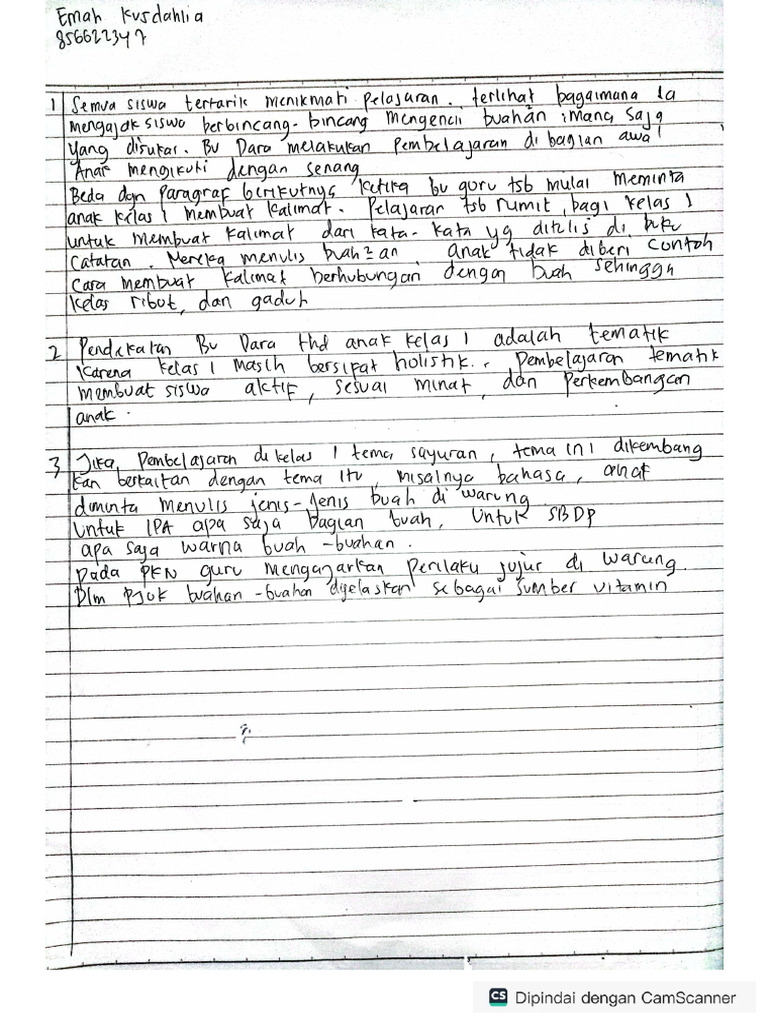 Emah Kusdahlia
856622347
1 Semua siswa tertarik menikmati pelajaran. terlihat bagaimana Ia
mengajak siswa berbincang-bincang mengenai buahan : mana saja
yang disukai. Bu Dara melakukan pembelajaran di bagian awal
Anak mengikuti dengan senang
Beda dgn Paragraf berikutnya ketika bu guru tsb mulai meminta
anak kelas 1 membuat kalimat. Pelajaran tsb rumit, bagi kelas 1
untuk membuat kalimat dari kata-kata yg ditulis di buku
Catatan. Mereka menulis buah2an. anak tidak diberi contoh
Cara membuat kalimat berhubungan dengan buah sehingga
kelas ribut, dan gaduh
2 Pendekatan Bu Dara thd anak kelas 1 adalah tematik
karena kelas 1 masih bersipat holistik. Pembelajaran tematik
membuat siswa aktif, sesuai minat, dan perkembangan
anak.
3 Jika, Pembelajaran di kelas 1 tema sayuran, tema ini dikembang
kan berkaitan dengan tema itu, misalnya bahasa, anak
diminta menulis jenis-jenis buah di warung
Untuk IPA apa saja bagian buah, Untuk SBDP
apa saja warna buah-buahan.
Pada PKN guru mengajarkan perilaku jujur di warung.
Dlm PJOK buahan-buahan dijelaskan sebagai sumber vitamin
CS Dipindai dengan CamScanner